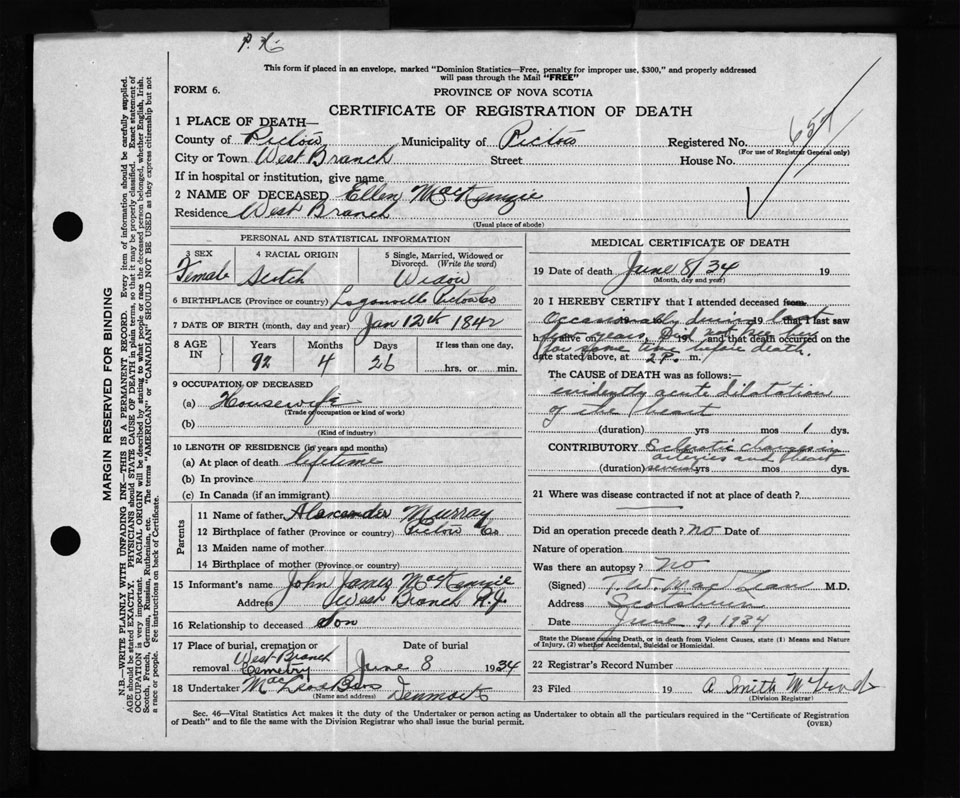 This form if placed in an envelope, marked "Dominion Statistics—Free, penalty for improper use, $300," and properly addressed
will pass through the Mail "FREE"
FORM 6.
PROVINCE OF NOVA SCOTIA
CERTIFICATE OF REGISTRATION OF DEATH
1 PLACE OF DEATH—
County of Pictou Municipality of Pictou Registered No.
(For use of Registrar General only)
City or Town West Branch Street House No.
If in hospital or institution, give name
2 NAME OF DECEASED Ellen MacKenzie
Residence West Branch
(Usual place of abode)
PERSONAL AND STATISTICAL INFORMATION
3 SEX 4 RACIAL ORIGIN 5 Single, Married, Widowed or Divorced. (Write the word)
Female Scotch Widow
6 BIRTHPLACE (Province or country) Loganville Pictou Co
7 DATE OF BIRTH (month, day and year) Jan 12th 1842
8 AGE IN Years Months Days If less than one day,
92 4 26 hrs. or min.
9 OCCUPATION OF DECEASED
(a) Housewife
(Trade or occupation or kind of work)
(b)
(Kind of industry)
10 LENGTH OF RESIDENCE (in years and months)
(a) At place of death lifetime
(b) In province
(c) In Canada (if an immigrant)
Parents
11 Name of father Alexander Murray
12 Birthplace of father (Province or country) Pictou Co
13 Maiden name of mother
14 Birthplace of mother (Province or country)
15 Informant's name John James MacKenzie
Address West Branch R.J.
16 Relationship to deceased Son
17 Place of burial, cremation or removal Date of burial
West Branch Cemetry June 8 1934
18 Undertaker MacLeod Bros Denmark
(Name and address)
MEDICAL CERTIFICATE OF DEATH
19 Date of death June 8/34 19
(Month, day and year)
20 I HEREBY CERTIFY that I attended deceased from
Occasionally during last 19 that I last saw
h alive on few years, Did not see her 19 and that death occurred on the
for some time before death.
date stated above, at 2 P. m.
The CAUSE of DEATH was as follows:—
evidently acute dilatation
of the heart
(duration) yrs mos 1 dys.
CONTRIBUTORY Sclerotic changes in
arteries and heart
(duration) several yrs mos dys.
21 Where was disease contracted if not at place of death?
Did an operation precede death? no Date of
Nature of operation
Was there an autopsy? no
(Signed) T. W. MacLean M.D.
Address Scotsburn
Date June 9, 1934
State the Disease causing Death, or in death from Violent Causes, state (1) Means and Nature
of Injury, (2) whether Accidental, Suicidal or Homicidal.
22 Registrar's Record Number
23 Filed 19
(Division Registrar)
Sec. 46—Vital Statistics Act makes it the duty of the Undertaker or person acting as Undertaker to obtain all the particulars required in the "Certificate of Registration
of Death" and to file the same with the Division Registrar who shall issue the burial permit.
(OVER)
MARGIN RESERVED FOR BINDING
N.B.—WRITE PLAINLY WITH UNFADING INK—THIS IS A PERMANENT RECORD. Every item of information should be carefully supplied.
AGE should be stated EXACTLY. PHYSICIANS should STATE CAUSE OF DEATH in plain terms, so that it may be properly classified. Exact statement of
OCCUPATION is very important. RACIAL ORIGIN will be described by stating to what people or race the deceased person belonged, whether English, Irish,
Scotch, French, German, Russian, Ruthenian, etc. The terms "AMERICAN" or "CANADIAN" SHOULD NOT BE USED as they express citizenship but not
a race or people. See instructions on back of Certificate.